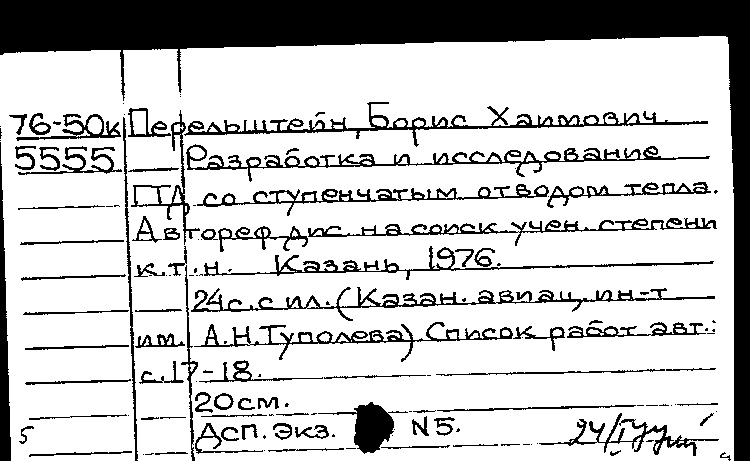 76-50к Перельштейн, Борис Хаимович.
5555 Разработка и исследование
ГТД со ступенчатым отводом тепла.
Автореф дис на соиск учен. степени
к.т.н. Казань, 1976.
24с. с ил. (Казан. авиац. ин-т
им. А.Н.Туполева) Список работ авт.:
с.17-18.
20см.
5 Дсп. Экз. N5. 24/I